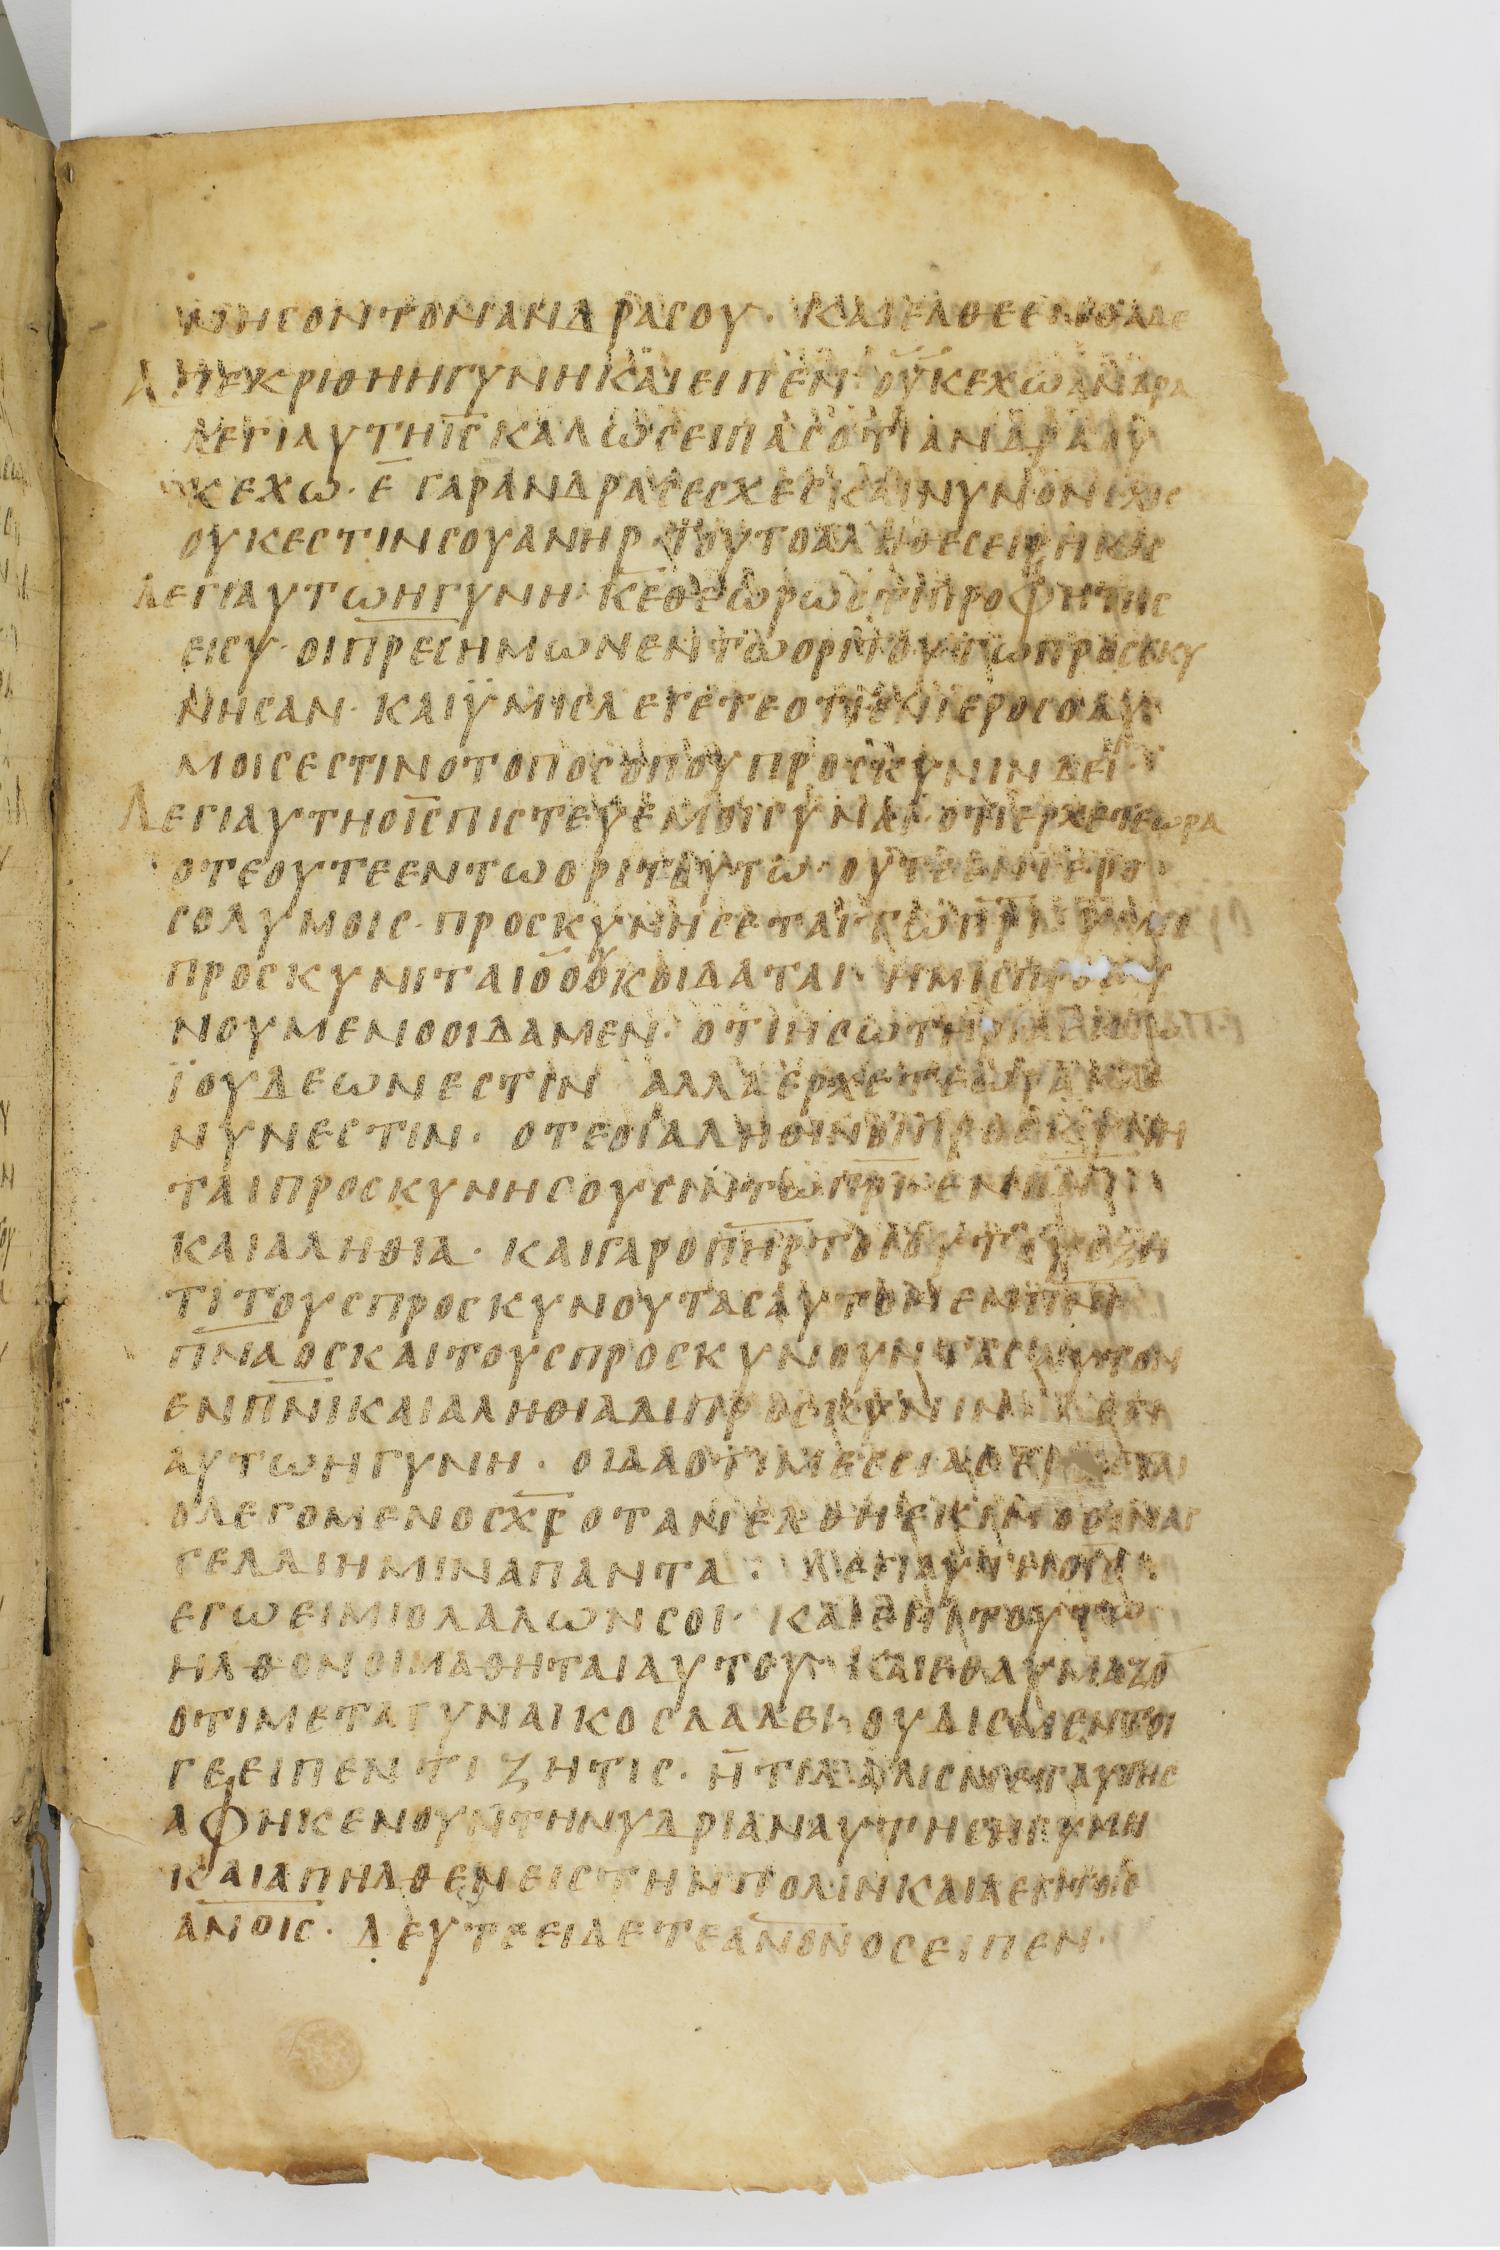 ΝΗϹΟΝΤΟΝΑΝΔΡΑϹΟΥ· ΚΑΙΕΛΘΕΕΝΘΑΔΕ
ΑΠΕΚΡΙΘΗΗΓΥΝΗΚΑΙΕΙΠΕΝ ΟΥΚΕΧΩΑΝΔΡΑ
ΛΕΓΙΑΥΤΗΙ̅Ϲ̅ΚΑΛΩϹΕΙΠΑϹΟΤΙΑΝΔΡΑΟΥ
ΚΕΧΩ· Ε̅ ΓΑΡΑΝΔΡΑϹΕϹΧΕϹΚΑΙΝΥΝΟΝΕΧΙϹ
ΟΥΚΕϹΤΙΝϹΟΥΑΝΗΡ ΤΟΥΤΟΑΛΗΘΕϹΕΙΡΗΚΑϹ
ΛΕΓΙΑΥΤΩΗΓΥΝΗ· Κ̅Ε̅ΘΕΩΡΩΟΤΙΠΡΟΦΗΤΗϹ
ΕΙϹΥ· ΟΙΠΡΕϹΗΜΩΝΕΝΤΩΟΡΙΤΟΥΤΩΠΡΟϹΕΚΥ
ΝΗϹΑΝ· ΚΑΙΫΜΙϹΛΕΓΕΤΕΟΤΙΕΝΙΕΡΟϹΟΛΥ
ΜΟΙϹΕϹΤΙΝΟΤΟΠΟϹΟΠΟΥΠΡΟϹΚΥΝΙΝΔΕΙ·
ΛΕΓΙΑΥΤΗΟΙ̅Ϲ̅ΠΙϹΤΕΥΕΜΟΙΓΥΝΑΙ·ΟΤΙΕΡΧΕΤΕΩΡΑ
ΟΤΕΟΥΤΕΕΝΤΩΟΡΙΤΟΥΤΩ·ΟΥΤΕΕΝΙΕΡΟ
ϹΟΛΥΜΟΙϹ·ΠΡΟϹΚΥΝΗϹΕΤΑΙ·ΤΩΠ̅Ρ̅Ι̅ ΥΜΙϹ
ΠΡΟϹΚΥΝΙΤΑΙΟΟΥΚΟΙΔΑΤΑΙ· ΗΜΙϹΠΡΟϹΚΥ
ΝΟΥΜΕΝΟΟΙΔΑΜΕΝ· ΟΤΙΗϹΩΤΗΡΙΑΕΚΤΩ
ΪΟΥΔΕΩΝΕϹΤΙΝ ΑΛΛΑΕΡΧΕΤΕΩΡΑΚΑΙ
ΝΥΝΕϹΤΙΝ· ΟΤΕΟΙΑΛΗΘΙΝΟΙΠΡΟϹΚΥΝΗ
ΤΑΙΠΡΟϹΚΥΝΗϹΟΥϹΙΝΤΩΠ̅Ρ̅Ι̅ΕΝΠ̅Ν̅Ι̅
ΚΑΙΑΛΗΘΙΑ· ΚΑΙΓΑΡΟΠ̅Η̅Ρ̅ΤΟΙΟΥΤΟΥϹΖΗ
ΤΙΤΟΥϹΠΡΟϹΚΥΝΟΥΤΑϹΑΥΤΟΝΕΝΠ̅Ν̅Ι̅
Π̅Ν̅Α̅ΟϹΚΑΙΤΟΥϹΠΡΟϹΚΥΝΟΥΝΤΑϹΑΥΤΟΝ
ΕΝΠ̅Ν̅Ι̅ΚΑΙΑΛΗΘΙΑΔΙΠΡΟϹΚΥΝΙΝ ΛΕΓΙ
ΑΥΤΩΗΓΥΝΗ· ΟΙΔΑΟΤΙΜΕϹϹΙΑϹΕΡΧΕΤΑΙ
ΟΛΕΓΟΜΕΝΟϹΧ̅Ϲ̅ΟΤΑΝΕΛΘΗΕΚΙΝΟϹΑΝΑΓ
ΓΕΛΛΙΗΜΙΝΑΠΑΝΤΑ: ΛΕΓΙΑΥΤΗΟΙ̅Ϲ̅
ΕΓΩΕΙΜΙΟΛΑΛΩΝϹΟΙ· ΚΑΙΕΠΙΤΟΥΤΩ
ΗΛΘΟΝΟΙΜΑΘΗΤΑΙΑΥΤΟΥ ΚΑΙΕΘΑΥΜΑΖΟ̅
ΟΤΙΜΕΤΑΓΥΝΑΙΚΟϹΛΑΛΕΙ ΟΥΔΙϹΜΕΝΤΟΙ
ΓΕΕΙΠΕΝΤΙΖΗΤΙϹ· ΗΤΙΛΑΛΙϹΜΕΤΑΥΤΗϹ
ΑΦΗΚΕΝΟΥΝΤΗΝΥΔΡΙΑΝΑΥΤΗϹΗΓΥΝΗ
ΚΑΙΑΠΗΛΘΕΝΕΙϹΤΗΝΠΟΛΙΝΚΑΙΛΕΓΙΤΟΙϹ
Α̅Ν̅ΟΙϹ· ΔΕΥΤΕΕΙΔΕΤΕΑ̅Ν̅Ο̅Ν̅ΟϹΕΙΠΕΝ·